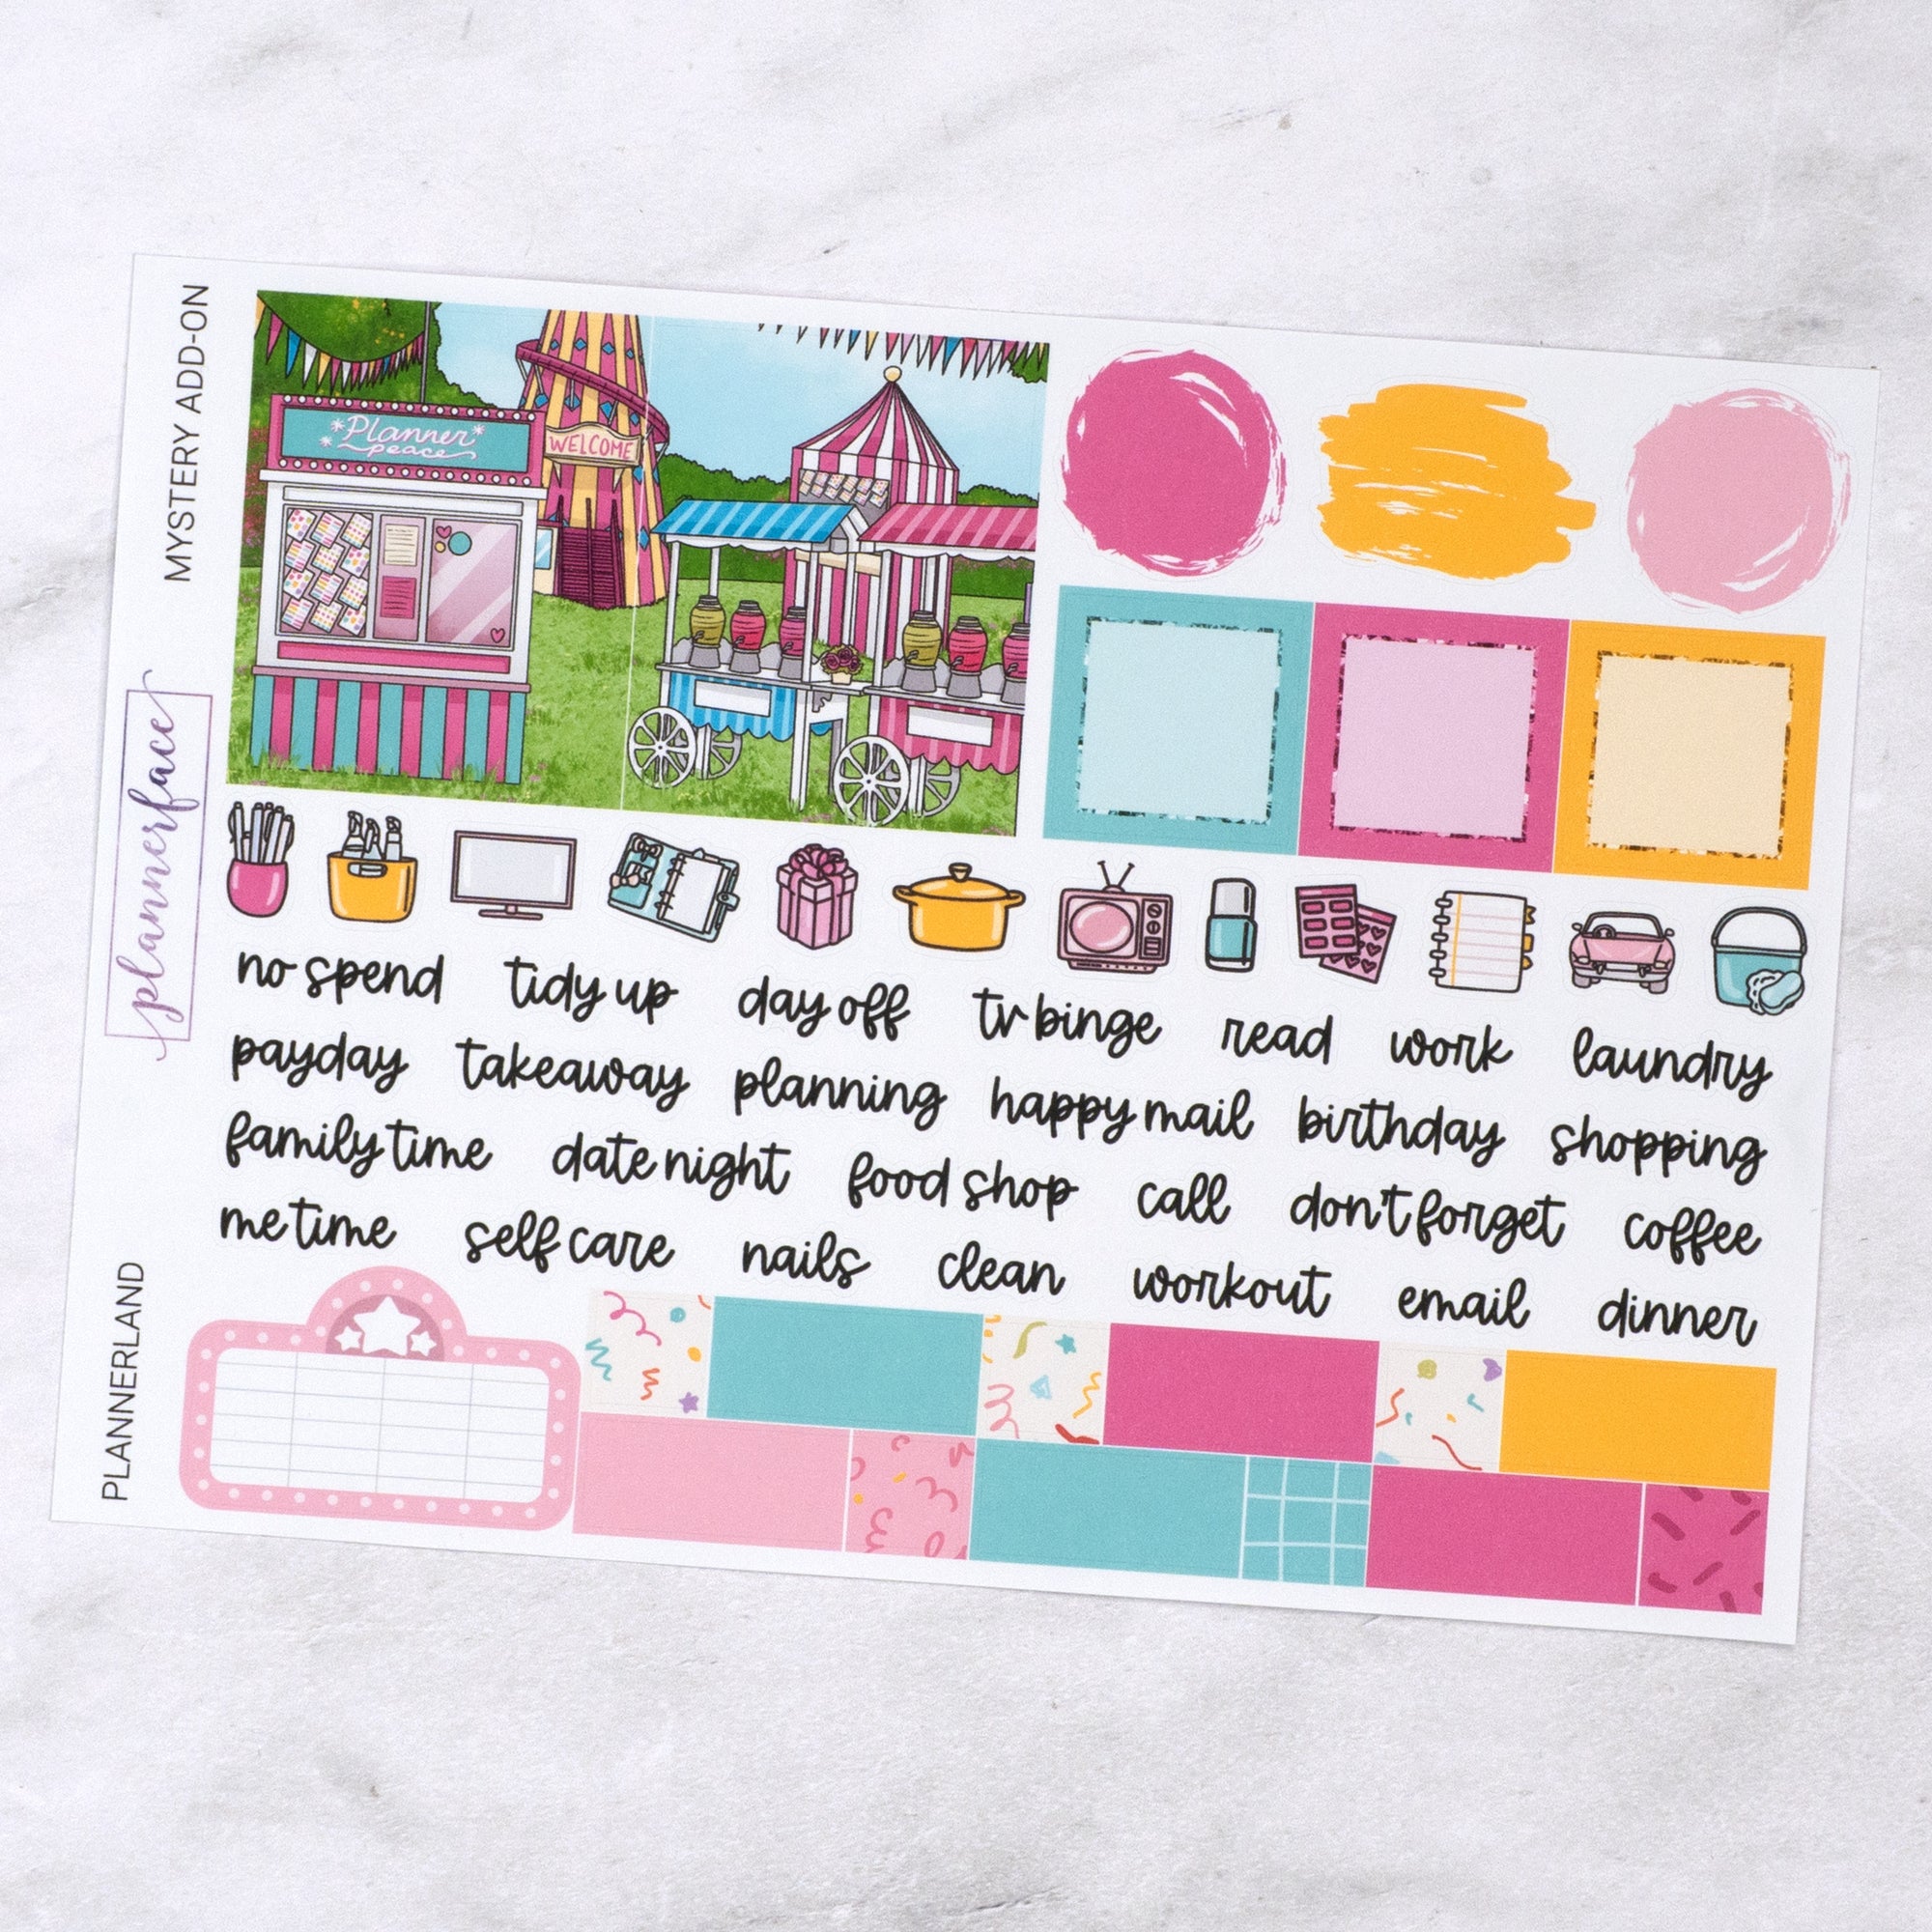 MYSTERY ADD-ON
plannerface
PLANNERLAND
Planner
peace
WELCOME
no spend tidy up day off tv binge read work laundry
payday takeaway planning happy mail birthday shopping
family time date night food shop call don't forget coffee
me time self care nails clean workout email dinner